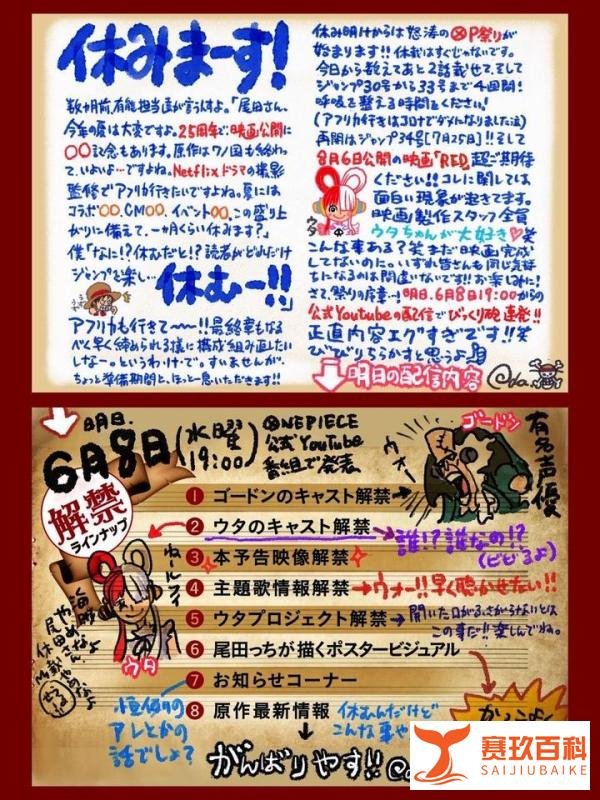 休みまーす!
数ヶ月前、有能担当が言うんすよ。「尾田さん、
今年の夏は大変ですよ。25周年で映画公開に
〇〇記念もあります。原作はワノ国も終わっ
て、いよいよ…ですよね。Netflixドラマの撮影
監修でアフリカ行きたいですよね。夏には
コラボ〇〇、CM〇〇、イベント〇〇、この盛り上
がりに備えて、一ヶ月くらい休みます?」
僕「なに!?休むだと!?読者がどれだけ
ジャンプを楽し…休むー!!」
アフリカも行きて〜〜!!最終章もなる
べく早く締められる様に構成組み直したい
しなー。というわけで。すいませんが、
ちょっと準備期間と、ほっと一息いただきます!!
休み明けからは怒涛のOP祭りが
始まります!!休載はすぐじゃないです。
今日から数えてあと2話載せて、そして
ジャンプ30号から33号まで4週間!
呼吸を整える時間をください!
(アフリカ行きはコロナでダメになりました泣)
再開はジャンプ34号[7月25日]!!そして
8月6日公開の映画「RED」超ご期待
ください!!コレに関しては
面白い現象が起きてます。
映画製作スタッフ全員
ウタちゃんが大好き♡笑
こんな事ある?笑 まだ映画完成
してないのに。いずれ皆さんも同じ気持
ちになるのは間違いない!!お楽しみに!
さて、祭りの序章…!明日、6月8日19:00からの
公式Youtubeの配信でびっくり砲連発!!
正直内容エグすぎです!!笑
びびりちらかすと思うよ
ウタ
明日の配信内容
Oda
明日、
6月8日(水曜
19:00)
ONE PIECE
公式YouTube
番組で発表
解禁
ラインナップ
ゴードン
有名声優
ウオー
1 ゴードンのキャスト解禁
2 ウタのキャスト解禁
誰!?誰なの!?
(ビビるよ)
3 本予告映像解禁
4 主題歌情報解禁
ウォー!!早く聴かせたい!!
5 ウタプロジェクト解禁
開いた口がふさがらないとは
この事だ!!楽しんでね。
6 尾田っちが描くポスタービジュアル
7 お知らせコーナー
恒例の
アレとかの
話でしょ?
8 原作最新情報
休むんだけど
ねールフィ
ウタ
がんばりやす!!
赛玖百科
SAIJIUBAIKE